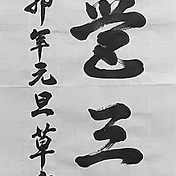 三
卯年元旦草